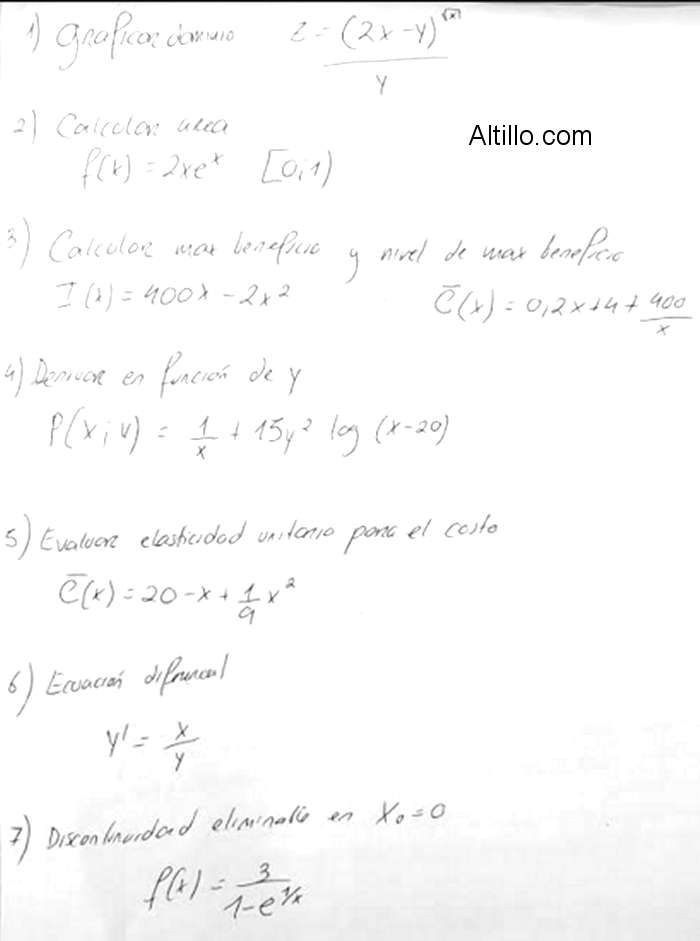 1) Graficar dominio z = (2x-y)^√x / y
2) Calcular area
Altillo.com
f(x) = 2xe^x [0;1)
3) Calcular max beneficio y nivel de max beneficio
I(x) = 400x - 2x² C̅(x) = 0,2x+4+ 400/x
4) Derivar en función de y
P(x;y) = 1/x + 15y² log (x-20)
5) Evaluar elasticidad unitaria para el costo
C̅(x) = 20-x+ 1/9 x²
6) Ecuación diferencial
y' = x/y
7) Discontinuidad eliminable en X₀=0
f(x) = 3/(1-e^(1/x))